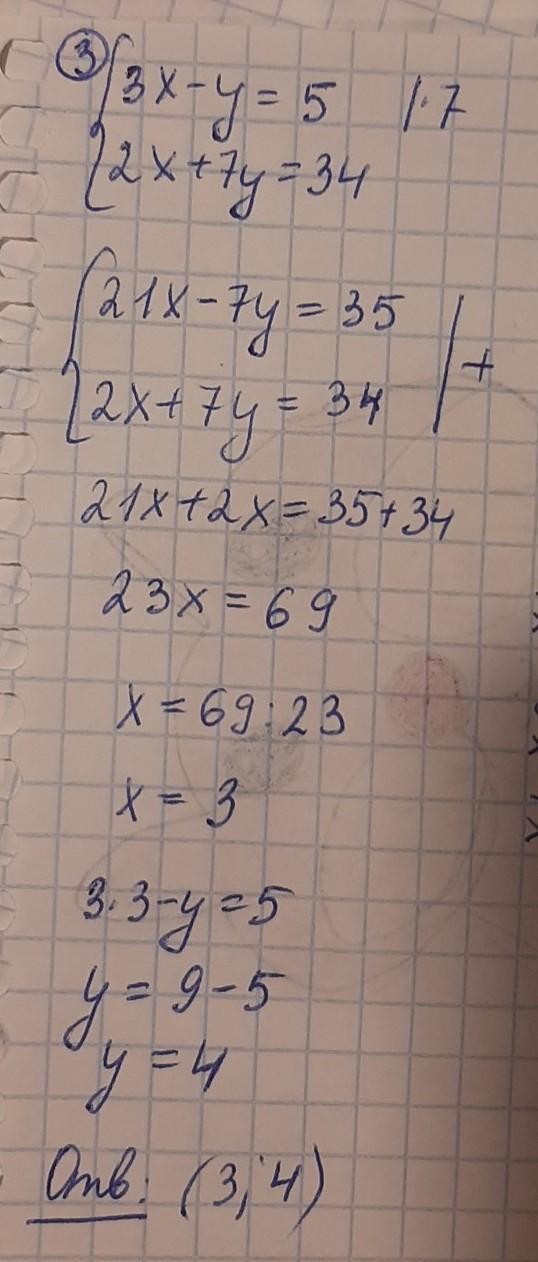 ③ {3x-y=5 |·7
{2x+7y=34
{21x-7y=35
{2x+7y=34 |+
21x+2x=35+34
23x=69
x=69:23
x=3
3·3-y=5
y=9-5
y=4
Отв: (3;4)